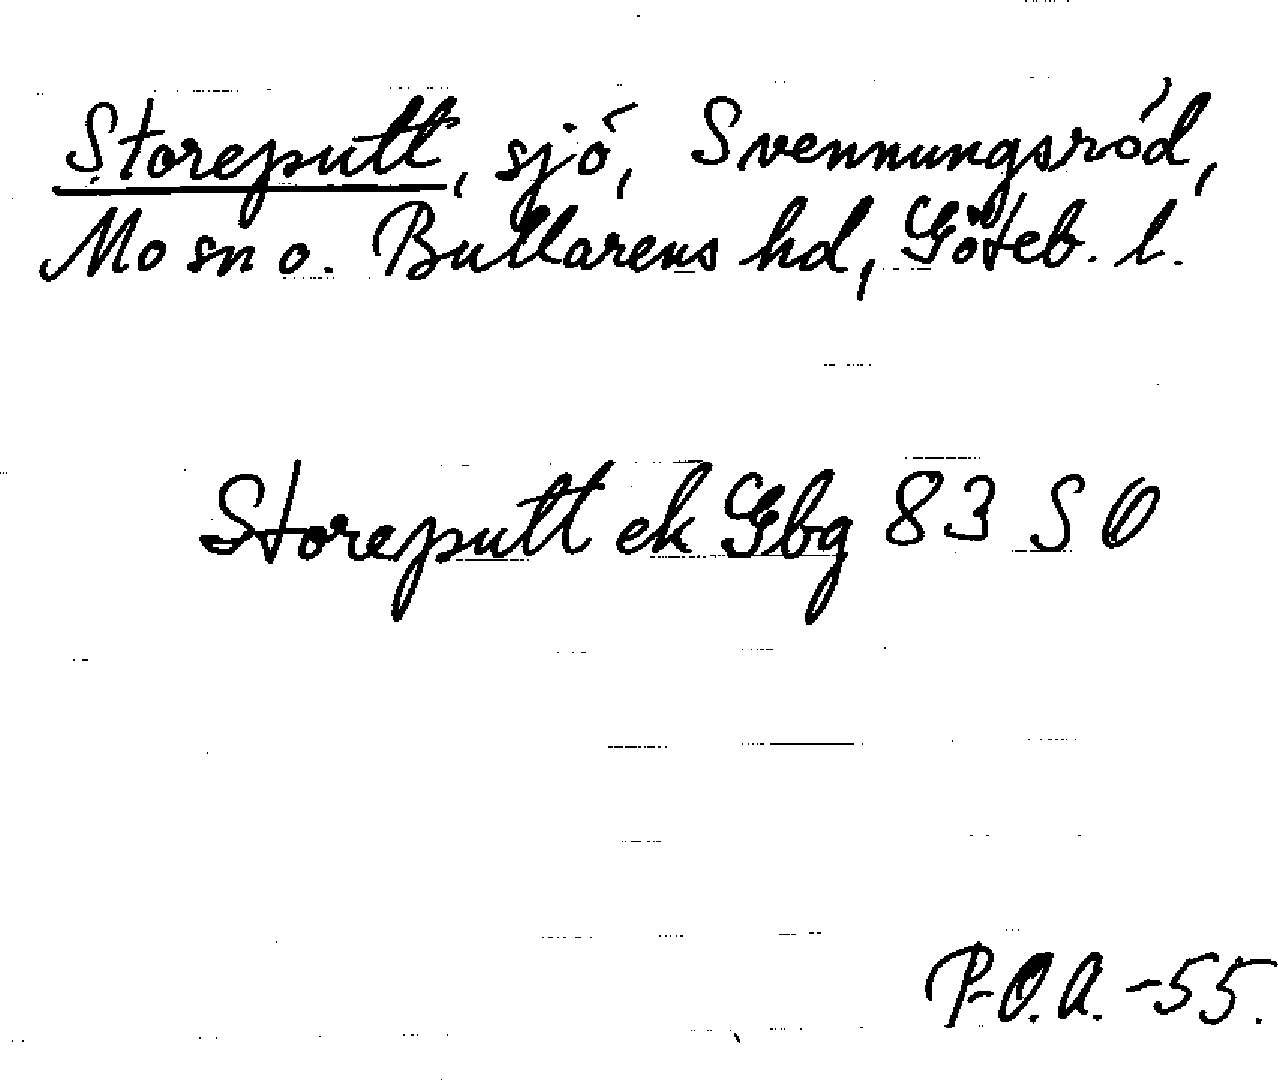 Storeputt, sjö, Svennungsröd,
Mo sn o. Bullarens hd, Göteb. l.
Storeputt ek Gbg 83 S O
P-O.A. -55.